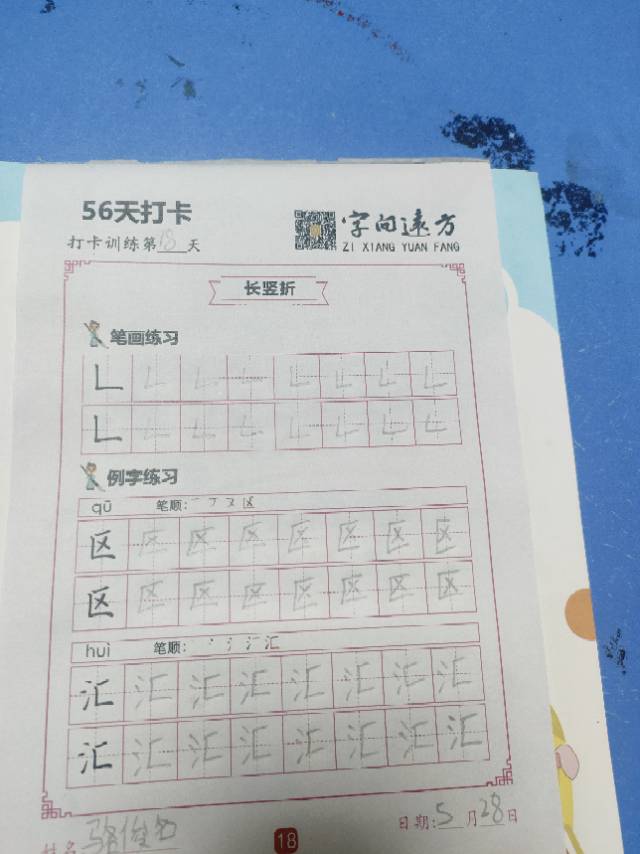 56天打卡
字向远方
打卡训练第18天
ZI XIANG YUAN FANG
长竖折
笔画练习
例字练习
qū 笔顺: 一 フ 又 区
区 区 区 区 区 区 区 区
区 区 区 区 区 区 区 区
huì 笔顺: 丶 冫 氵 汇
汇 汇 汇 汇 汇 汇 汇 汇
汇 汇 汇 汇 汇 汇 汇 汇
姓名 骆俊名
18
日期: 5月28日